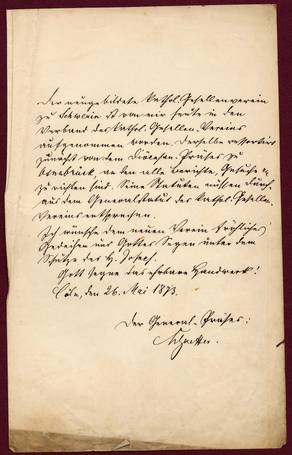 Der neugebildete kathol. Gesellenverein
zu Schwerin ist von mir heute in den
Verband des kathol. Gesellen-Vereins
aufgenommen worden. Derselbe ressortirt
zunächst von dem Diöcesan-Präses zu
Osnabrück, an den alle Berichte, Gesuche
zu richten sind. Seine Statuten müssen durch-
aus dem Generalstatut des kathol. Gesellen-
Vereins entsprechen.
Ich wünsche dem neuen Verein fröhliches
Gedeihen und Gottes Segen unter dem
Schutze des h. Joseph.
Gott segne das ehrbare Handwerk!
Cöln, den 26. Mai 1873.
Der General-Präses: